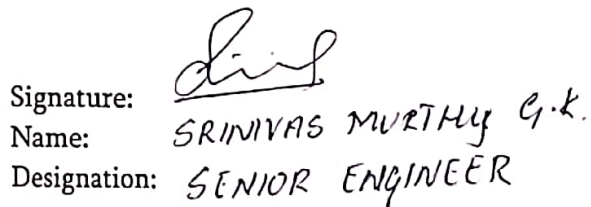 Signature:
Name: SRINIVAS MURTHY G.K.
Designation: SENIOR ENGINEER